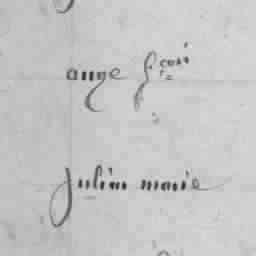 ange fr̃cois
Julien marie